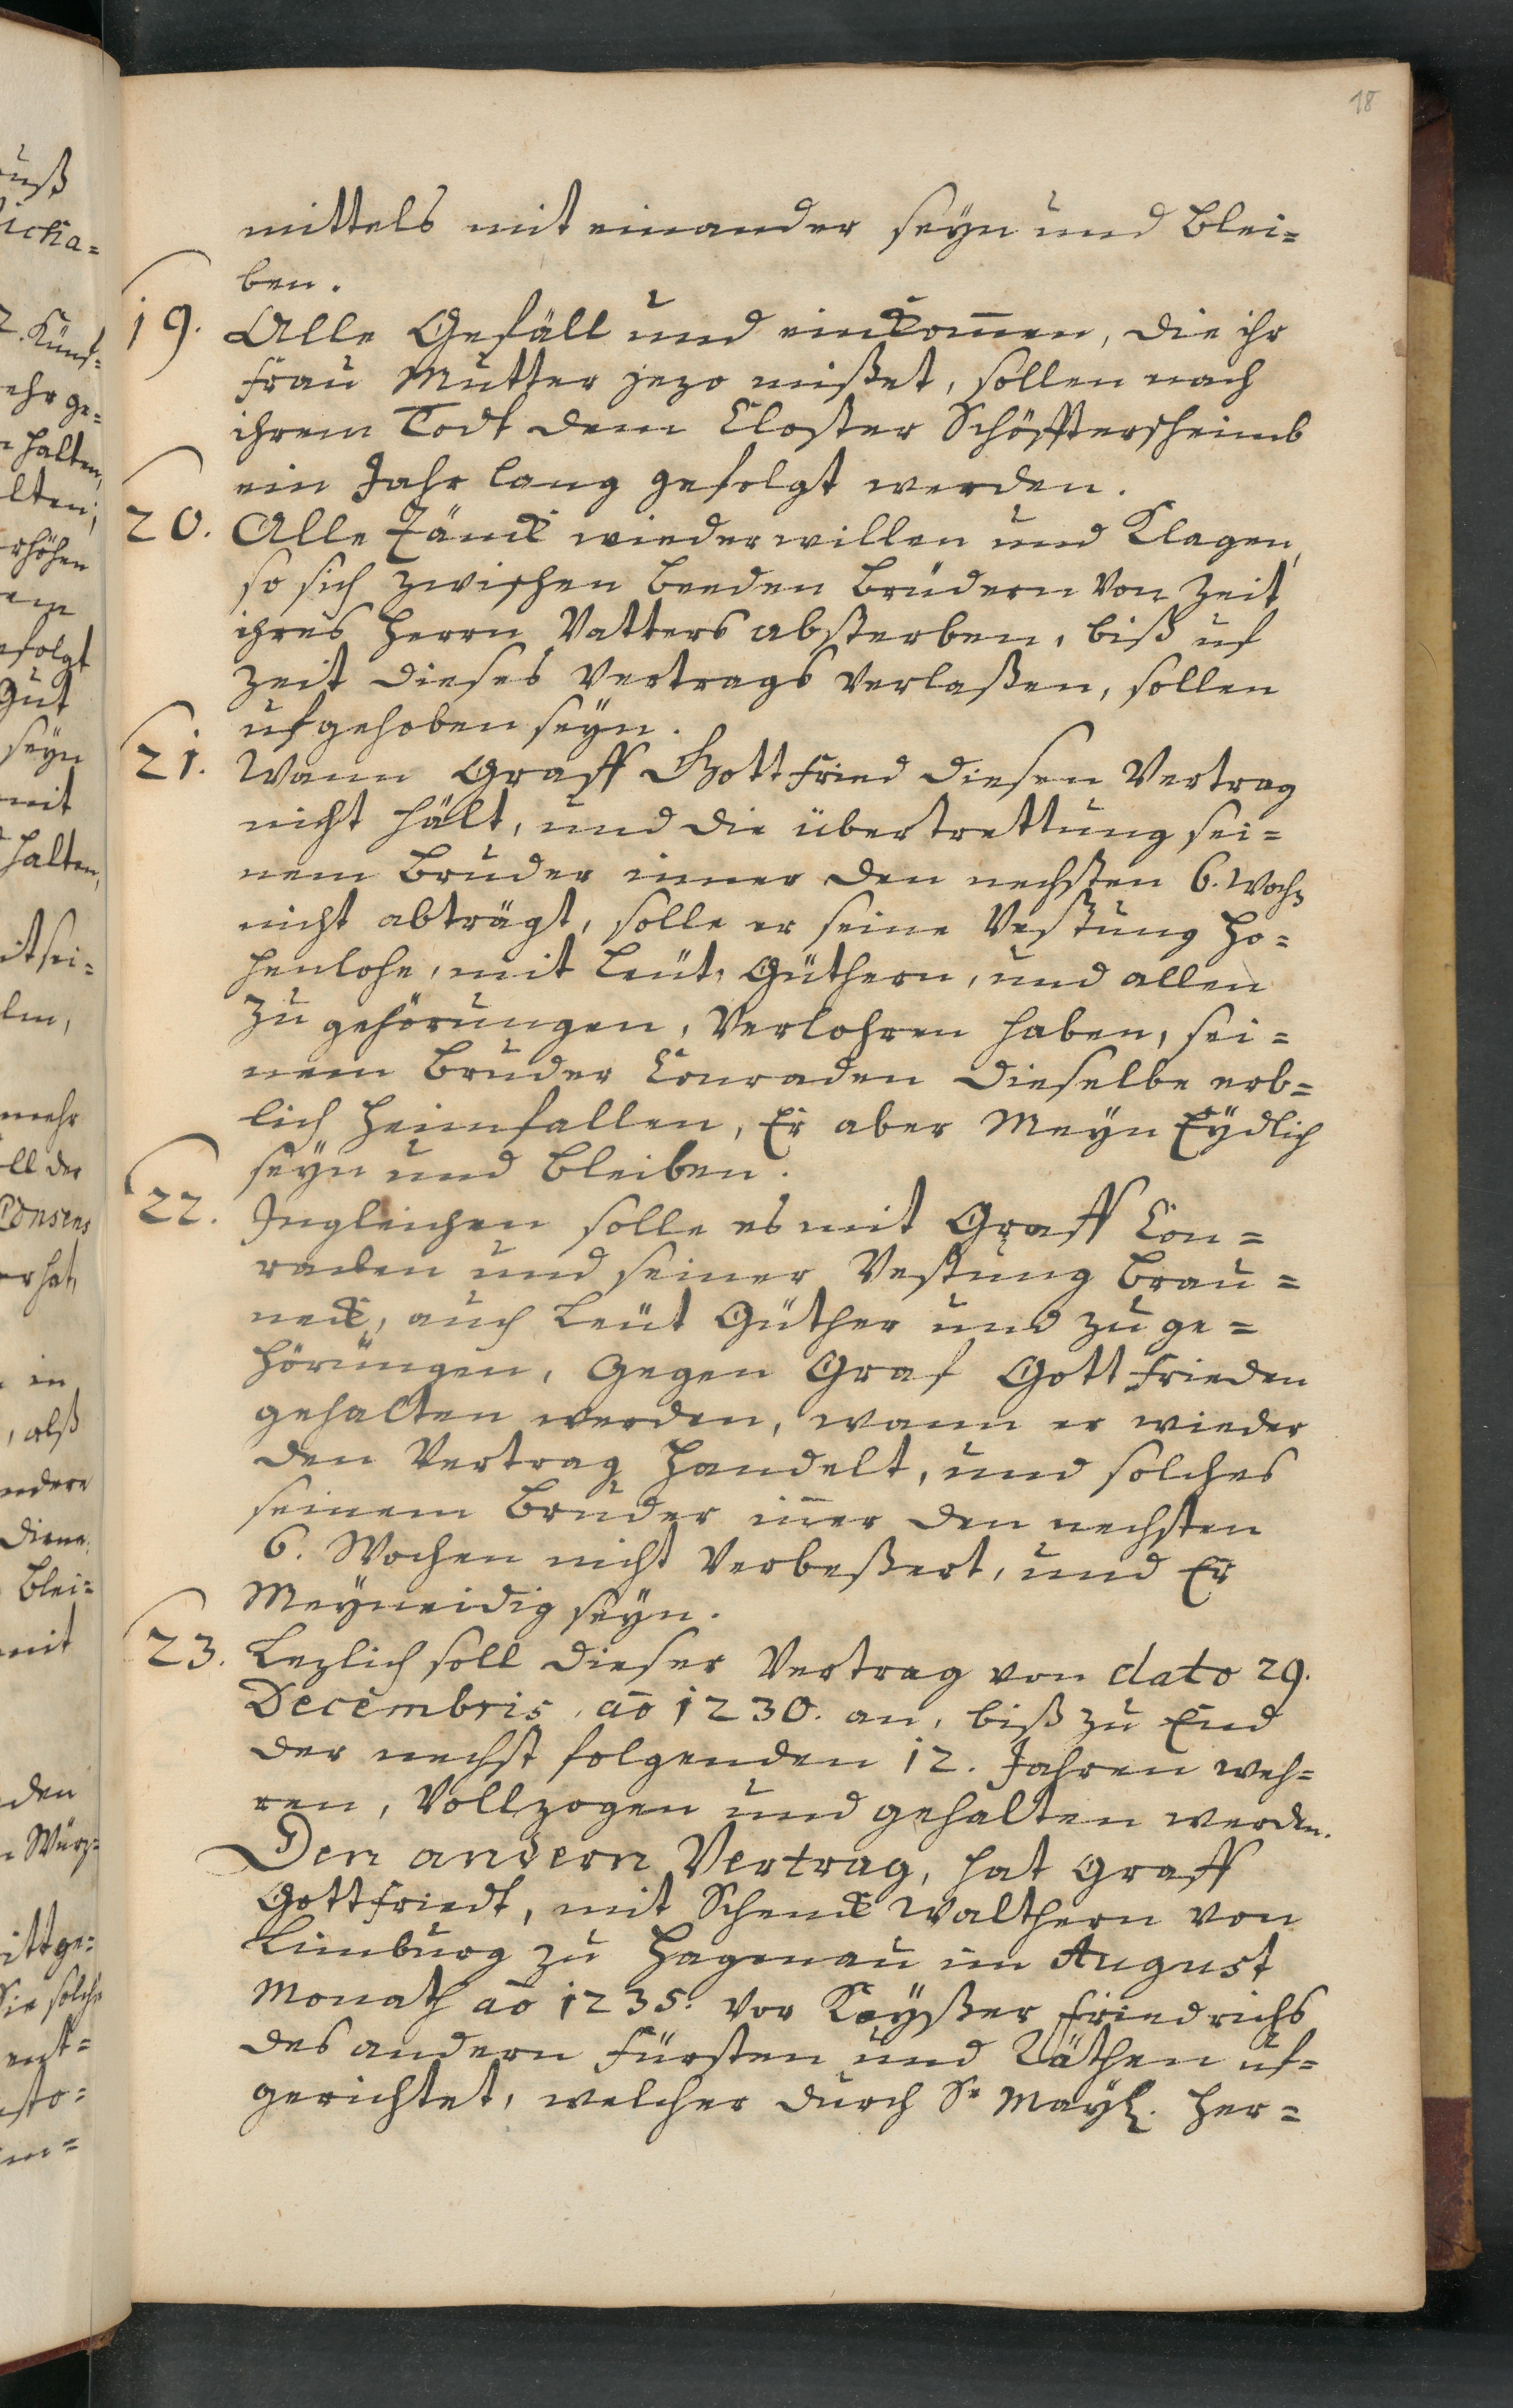 18
mittels mit einander seyn und blei=
ben.
19. Alle Gefäll und einkom̄en, die ihr
Frau Mutter jezo nießet, sollen nach
ihrem Todt dem Closter Schöfftersheimb
ein Jahr lang gefolgt werden.
20. Alle Zänck wiederwillen und Klagen,
so sich zwischen beeden Brüdern von Zeit
ihres Herrn Vatters absterben, biß uf
Zeit dieses Vertrags verlaßen, sollen
ufgehoben seyn.
21. Wann Graff Gottfried diesen Vertrag
nicht hält, und die übertrettung sei=
nem Bruder inner den nechsten 6. Woch
nicht abträgt, solle er seine Vestung Ho=
henlohe, mit Leüt, Güthern, und allen
Zugehörungen, verlohren haben, sei=
nem Bruder Conraden dieselbe erb=
lich heimfallen, Er aber Meyn Eydlich
seyn und bleiben.
22. Ingleichen solle es mit Graff Con=
raden und seiner Vestung Brau=
neck, auch Leüt Güther und zuge=
hörungen, gegen Graf Gottfrieden
gehalten werden, wann er wieder
den Vertrag handelt, und solches
seinem Bruder in̄er den nechsten
6. Wochen nicht verbeßert, und Er
Meyneidig seyn.
23. Lezlich soll dieser Vertrag von dato 29.
Decembris, aō 1230. an, biß zu End
der nechst folgenden 12. Jahren weh=
ren, Vollzogen und gehalten werden.
Den andern Vertrag, hat Graff
Gottfriedt, mit Schenck Walthern von
Limburg zu Hagenau im August
Monath aō 1235. vor Keyßer Friedrichs
des andern Fürsten und Räthen uf=
gerichtet, welcher durch Sr. May. her=